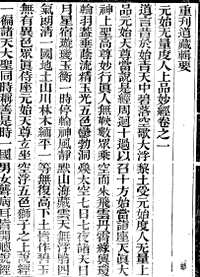 重刊道藏輯要
元始無量度人上品妙經卷之一
道言昔於始青天中碧落空歌大浮黎土受元始度人無量上
品元始天尊當說是經周迴十過以召十方始當詣座天真大
神上聖高尊妙行真人無鞅數眾乘空而來飛雲丹霄綠輿瓊
輪羽蓋垂蔭流精玉光五色鬱勃洞煥太空七日七夜諸天日
月星宿璇璣玉衡一時停輪神風靜默山海藏雲天無浮翳四
氣朗清一國地土山川林木緬平一等無復高下土皆作碧玉
無有異色眾真侍座元始天尊玄坐空浮五色獅子之上說經
一徧諸天大聖同時稱善是時一國男女聾病耳皆開聰說經